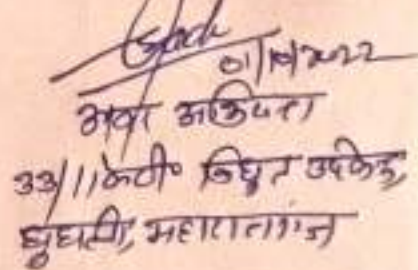 01/10/2022
अवर अभियन्ता
33/11 केवी० विद्युत उपकेन्द्र,
घुघली, महाराजगंज